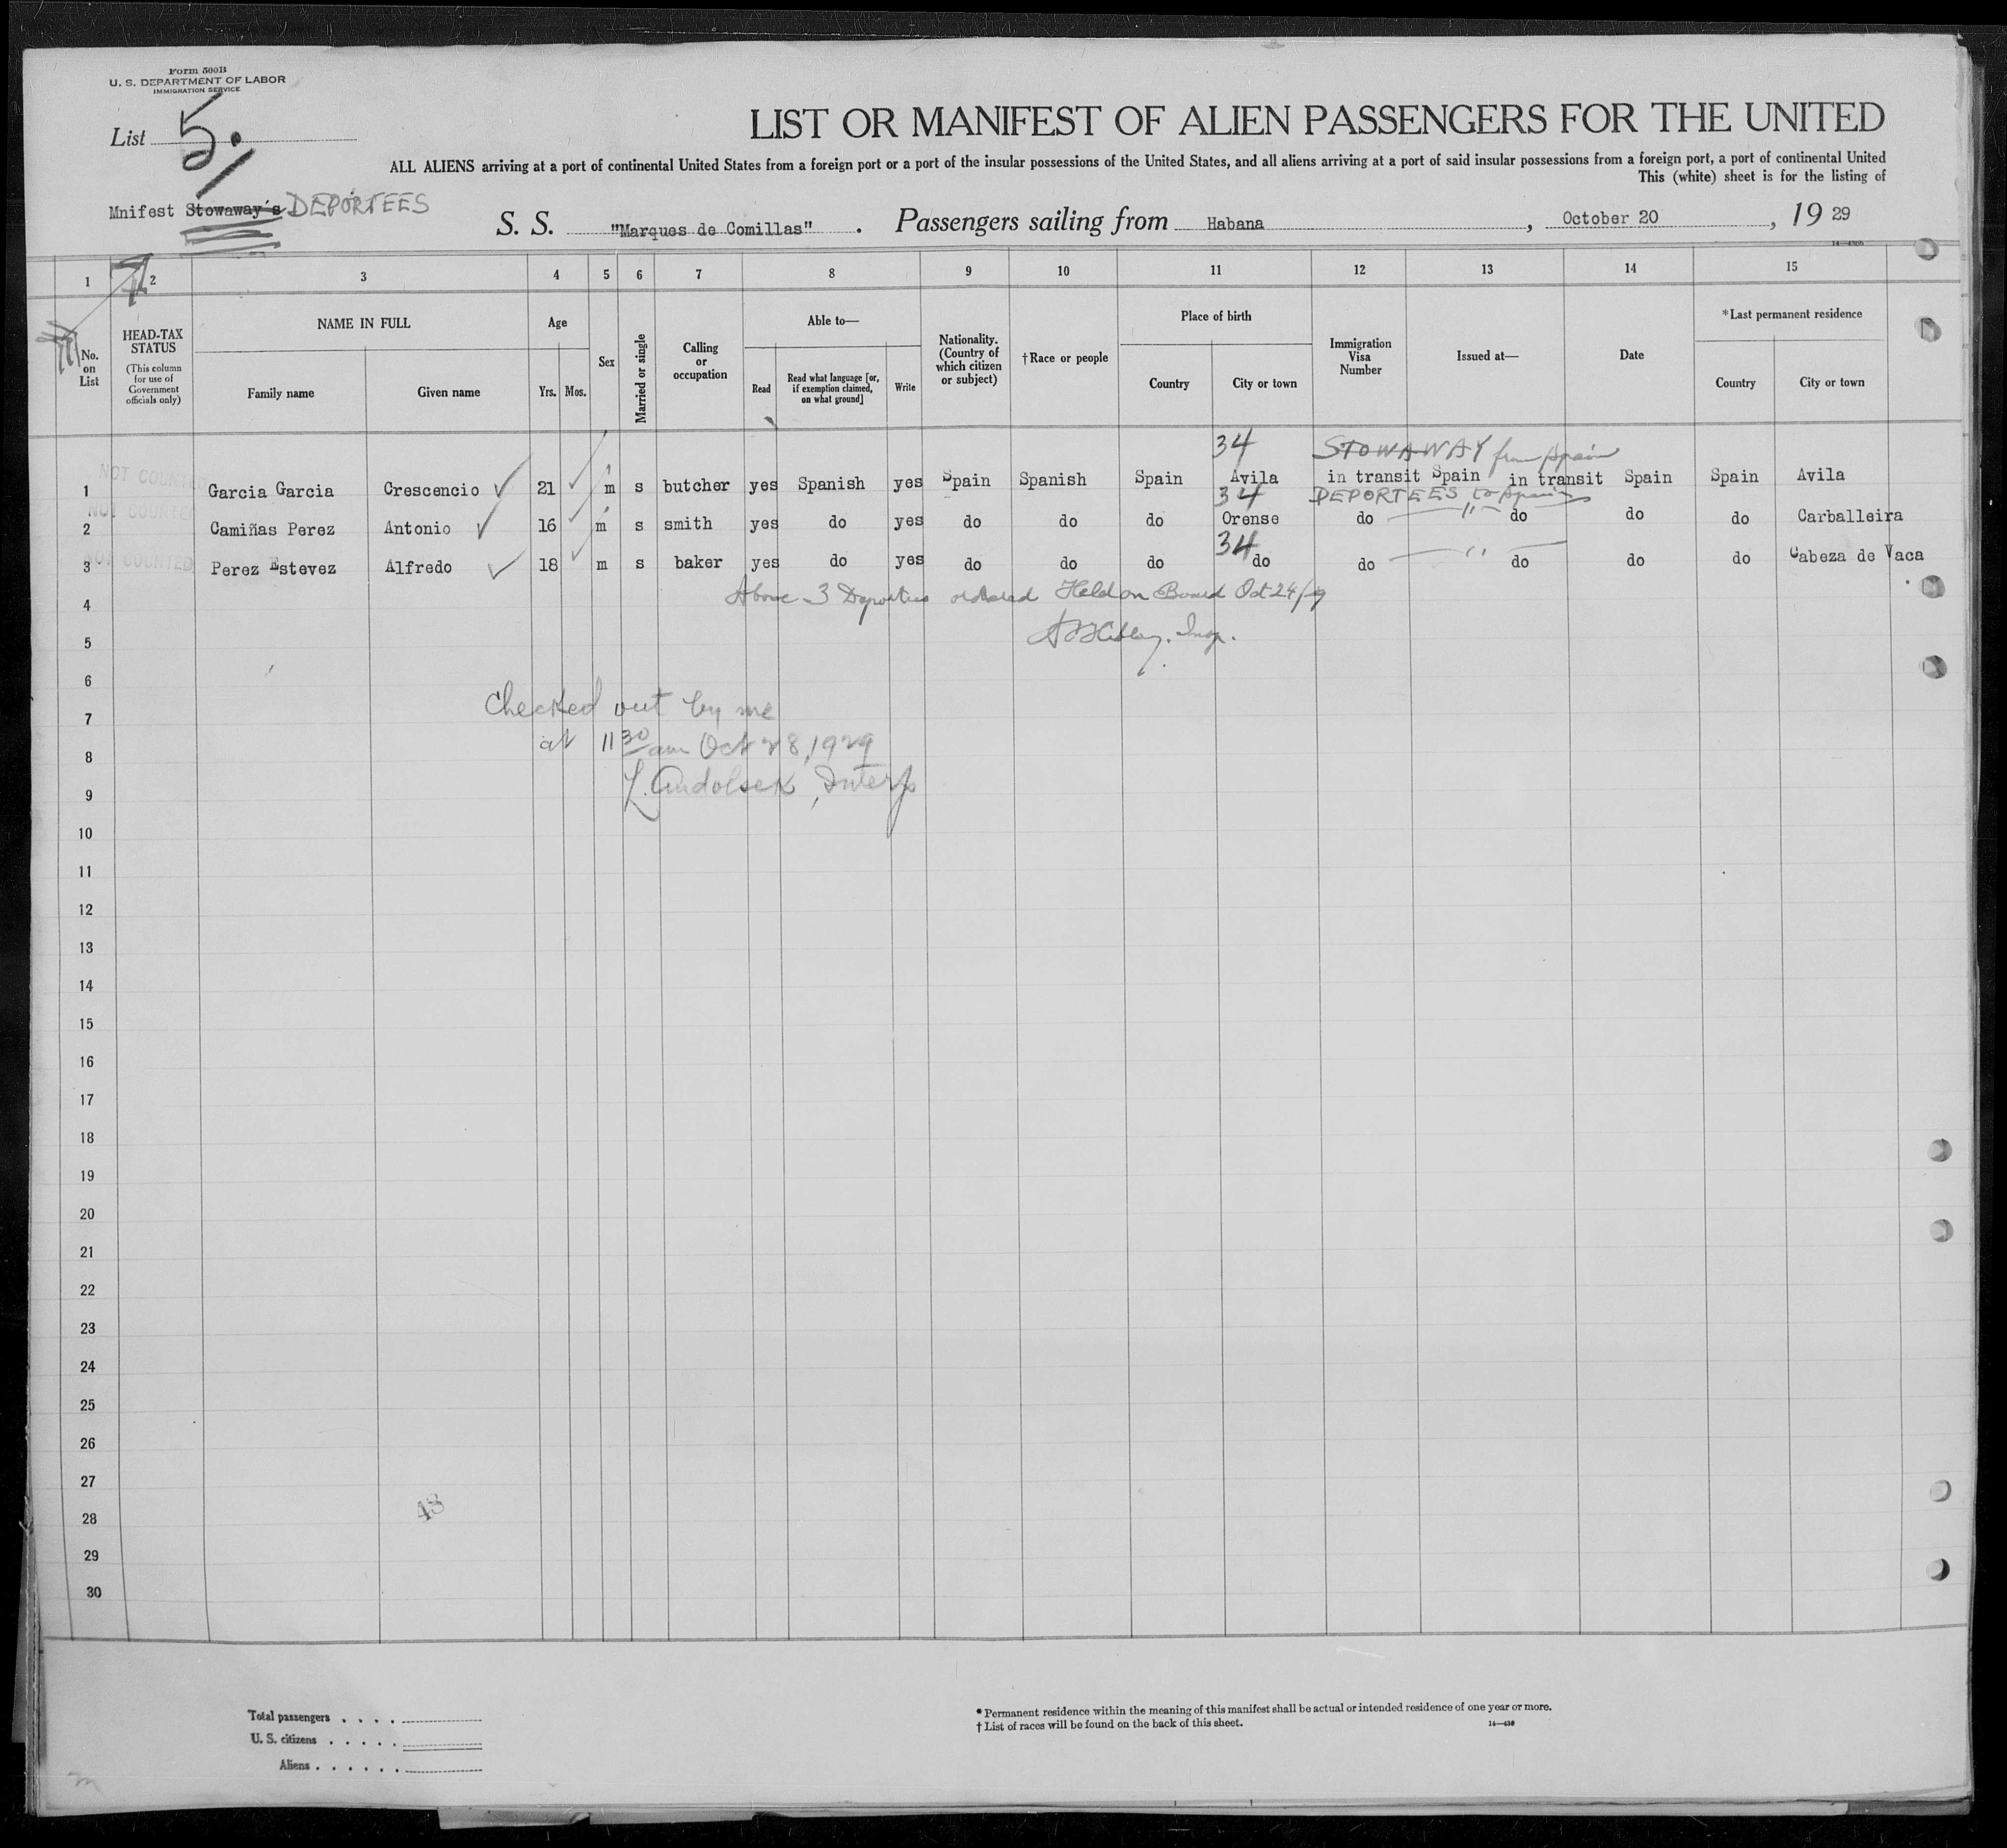 Form 500B
U. S. DEPARTMENT OF LABOR
IMMIGRATION SERVICE
List 5.
LIST OR MANIFEST OF ALIEN PASSENGERS FOR THE UNITED
ALL ALIENS arriving at a port of continental United States from a foreign port or a port of the insular possessions of the United States, and all aliens arriving at a port of said insular possessions from a foreign port, a port of continental United
This (white) sheet is for the listing of
Mnifest Stowaway's DEPORTEES
S. S. "Marques de Comillas". Passengers sailing from Habana, October 20, 19 29
14—430b
1 2 3 4 5 6 7 8 9 10 11 12 13 14 15
No. on List
HEAD-TAX STATUS
(This column for use of Government officials only)
NAME IN FULL
Family name Given name
Age
Yrs. Mos.
Sex
Married or single
Calling or occupation
Able to—
Read
Read what language [or, if exemption claimed, on what ground]
Write
Nationality. (Country of which citizen or subject)
†Race or people
Place of birth
Country City or town
Immigration Visa Number
Issued at—
Date
*Last permanent residence
Country City or town
34 STOWAWAY from Spain
NOT COUNTED
1 Garcia Garcia Crescencio 21 m s butcher yes Spanish yes Spain Spanish Spain Avila in transit Spain in transit Spain Spain Avila
34 DEPORTEES to Spain
NOT COUNTED
2 Camiñas Perez Antonio 16 m s smith yes do yes do do do Orense do " do do do Carballeira
34
NOT COUNTED
3 Perez Estevez Alfredo 18 m s baker yes do yes do do do do do " do do do Cabeza de Vaca
4 Above 3 Deportees ordered Held on Board Oct 24/29
5 Insp.
6
7 Checked out by me
8 at 11 30 am Oct 28, 1929
9 L. Andolsek, Interp
10
11
12
13
14
15
16
17
18
19
20
21
22
23
24
25
26
27
28
48
29
30
Total passengers . . . .
U. S. citizens . . . . .
Aliens . . . . . .
* Permanent residence within the meaning of this manifest shall be actual or intended residence of one year or more.
† List of races will be found on the back of this sheet.
14—430